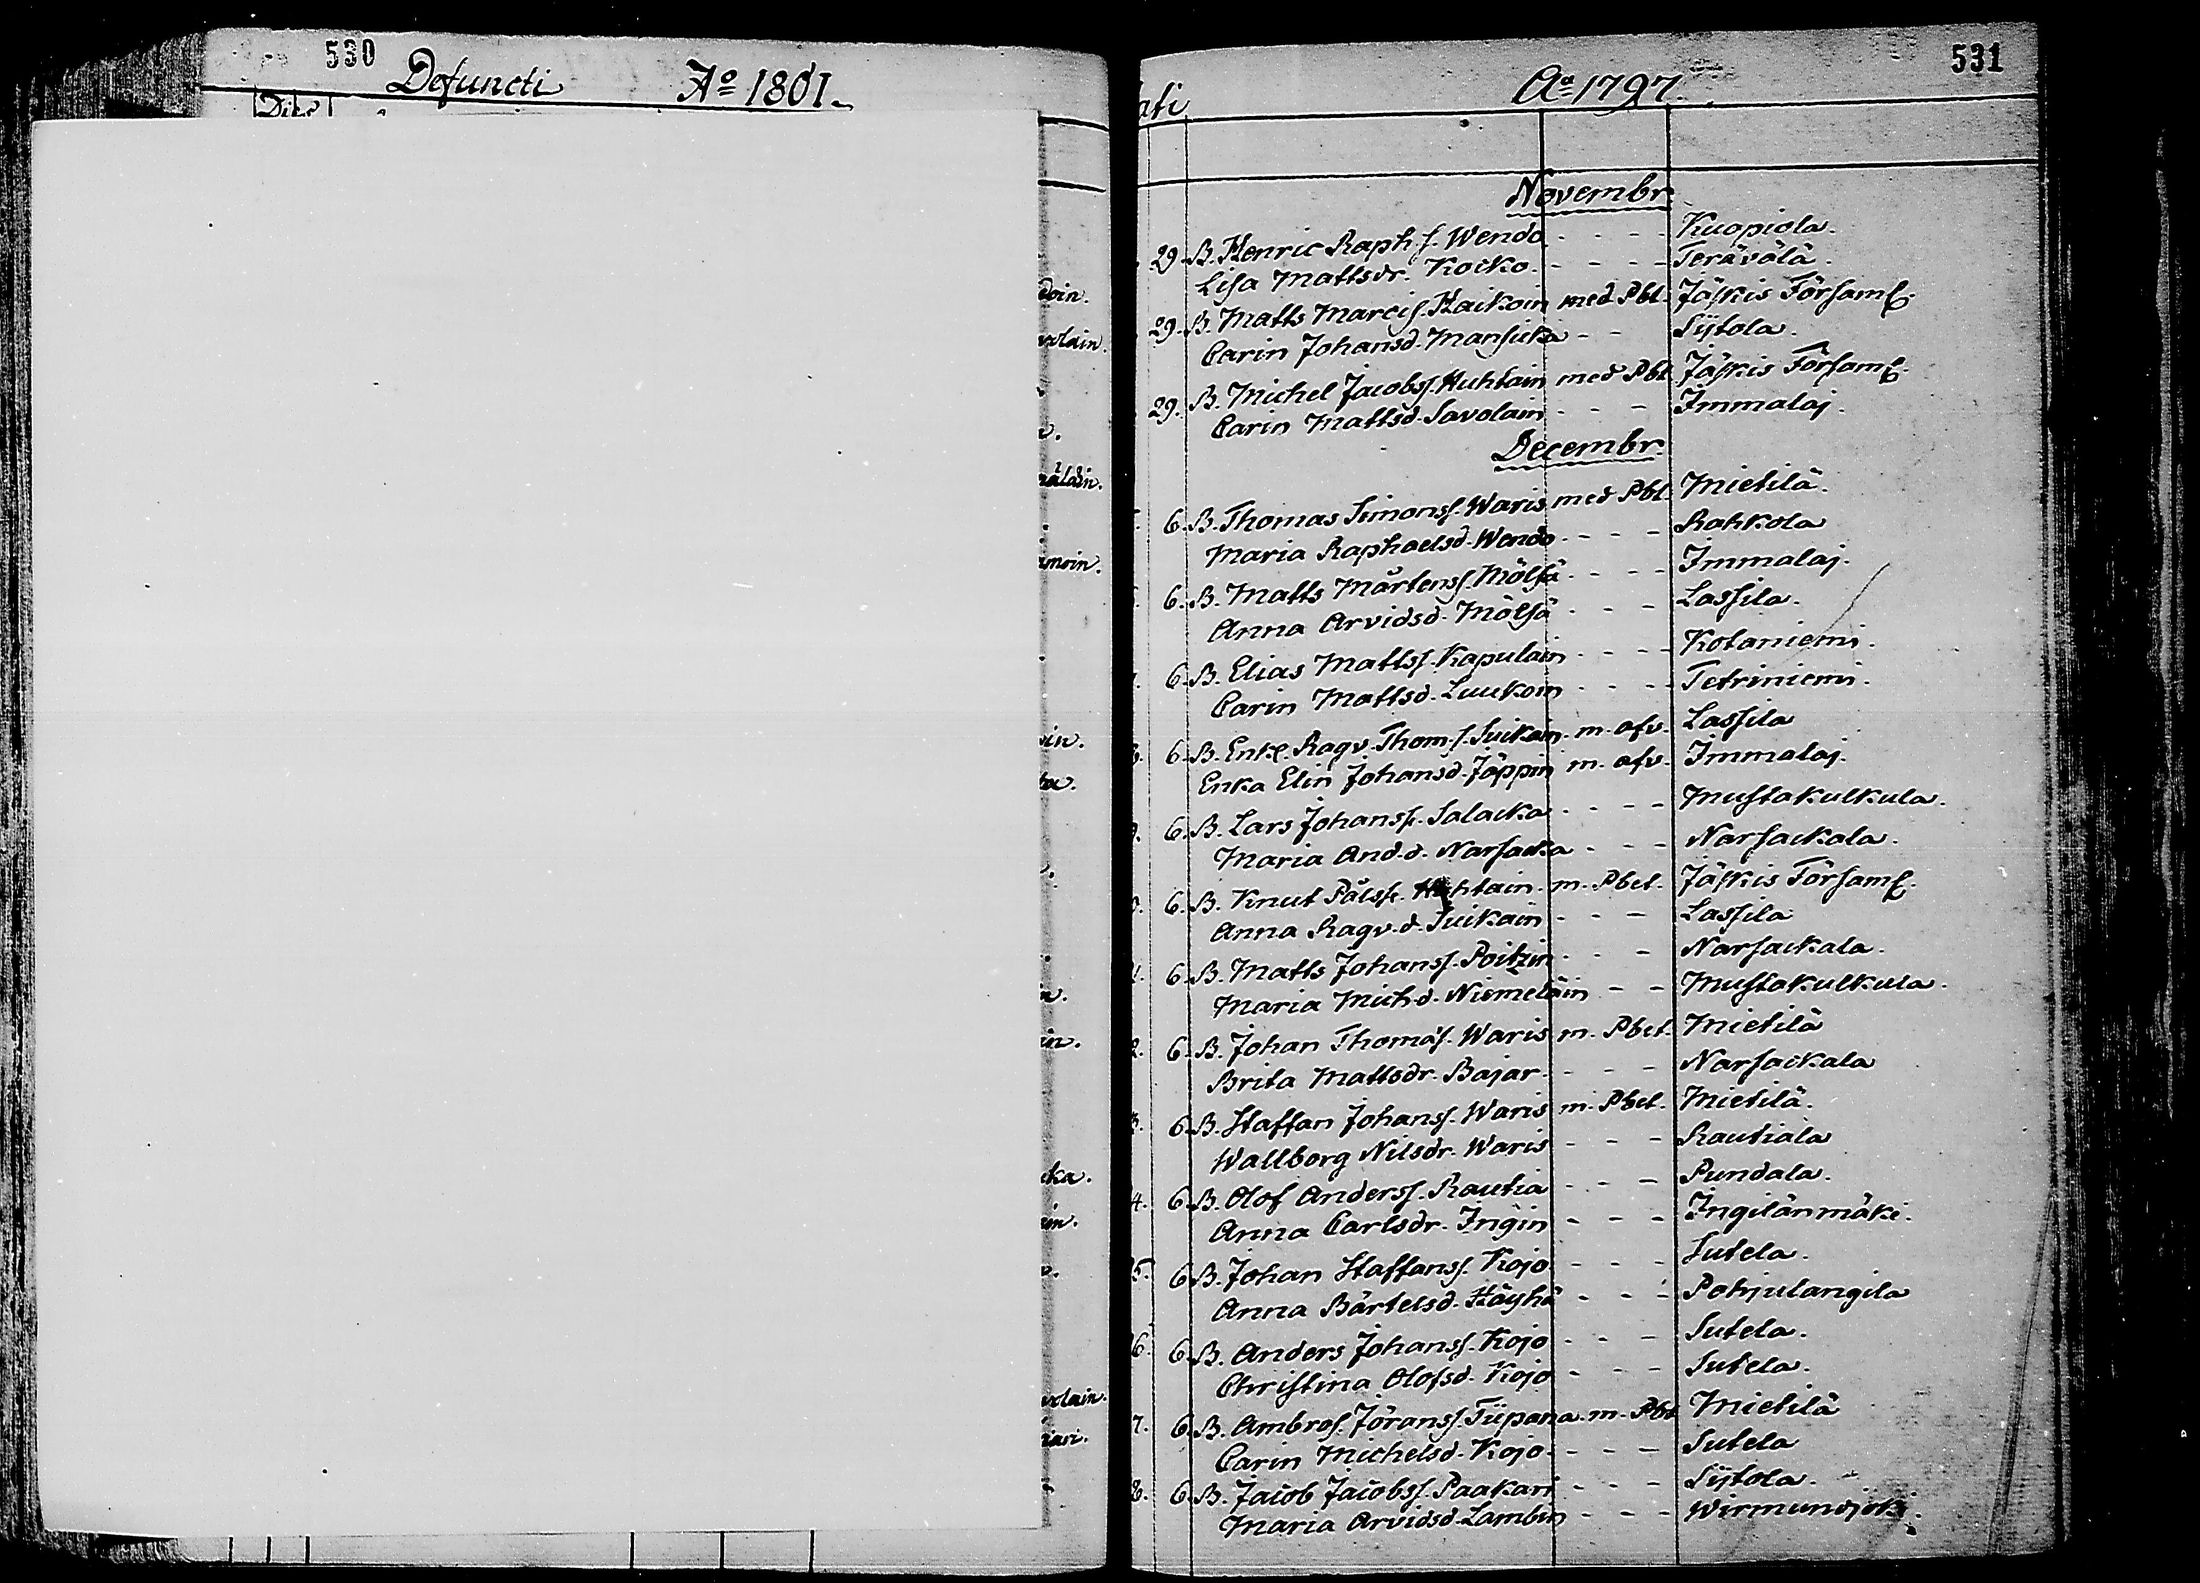 530
Defuncti Aº 1801.
Dies
doin.
volain.
amoin.
ta.
cka.
volain.
531
ati Aº 1797.
Novembr.
29. B. Henric Raph. s. Wendo - - - - Kuopiola.
Lisa Mattsdr. Koiko. - - - - Terävälä.
29. B. Matts Marcis. Haikoin med Pbt. Jäskis Församl.
Carin Johansd. Mansicka - - Sijtola.
29. B. Michel Jacobss. Huhtain med Pbt. Jäskis Församl.
Carin Mattsd. Savolain - - - Immalaj.
Decembr.
6. B. Thomas Simonss. Waris med Pbt. Mietilä.
Maria Raphaelsd. Wendo - - - - Rahkola
6. B. Matts Mårtenss. Mölsä - - - - Immalaj.
Anna Arvidsd. Mölsä - - - Lassila.
6. B. Elias Mattss. Kapulain - - - - Kotaniemi.
Carin Mattsd. Luukoin - - - - Tetriniemi.
6. B. Enkl. Ragv. Thom. s. Suikain. m. afv. Lassila
Enka Elin Johansd. Jäppin m. afv. Immalaj.
6. B. Lars Johanss. Salacka - - - - Mustakulkula.
Maria And. d. Narsacka - - - Narsackala.
6. B. Knut Pålss. Huhtain. m. Pbet. Jäskis Församl.
Anna Ragv. d. Suikain - - - Lassila
6. B. Matts Johanss. Poitzin - - - Narsackala.
Maria Mich. d. Niemeläin - - Mustakulkula.
6. B. Johan Thomas. Waris m. Pbet. Mietilä
Brita Mattsdr. Bajar - - - - Narsackala
6. B. Staffan Johanss. Waris m. Pbet. Mietilä.
Wallborg Nilsdr. Waris - - - Rautiala
4. 6. B. Olof Anderss. Rautia - - - Pundala.
Anna Carlsdr. Ingin - - - Ingilänmäki.
5. 6. B. Johan Staffanss. Kojo - - - Sutela.
Anna Bärtelsd. Häyhä - - - Pohjulangila
6. 6. B. Anders Johanss. Kojo - - - Sutela.
Christina Olofsd. Kojo - - - Sutela.
7. 6. B. Ambros. Jöranss. Tiipana. m. Pbt Mietilä
Carin Michelsd. Kojo - - - Sutela
8. 6. B. Jacob Jacobss. Paakari - - - Sijtola.
Maria Arvidsd. Lambin - - - Wirmundjoki.